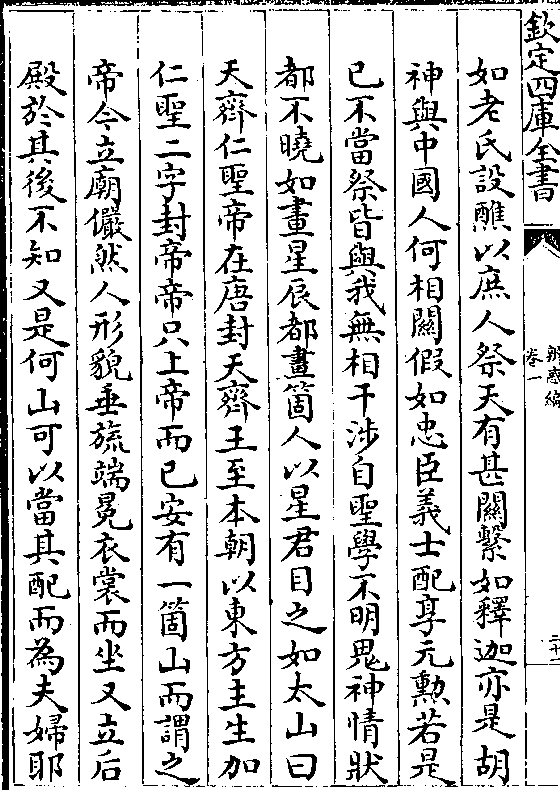 欽定四庫全書
辨惑編
卷一
如老氏設醮以庶人祭天有甚關繫如釋迦亦是胡
神與中國人何相關假如忠臣義士配享元勳若是
已不當祭皆與我無相干涉自聖學不明鬼神情狀
都不曉如畫星辰都畫箇人以星君目之如太山曰
天齊仁聖帝在唐封天齊王至本朝以東方主生加
仁聖二字封帝帝只上帝而已安有一箇山而謂之
帝今立廟儼然人形貌垂旒端冕衣裳而坐又立后
殿於其後不知又是何山可以當其配而為夫婦耶